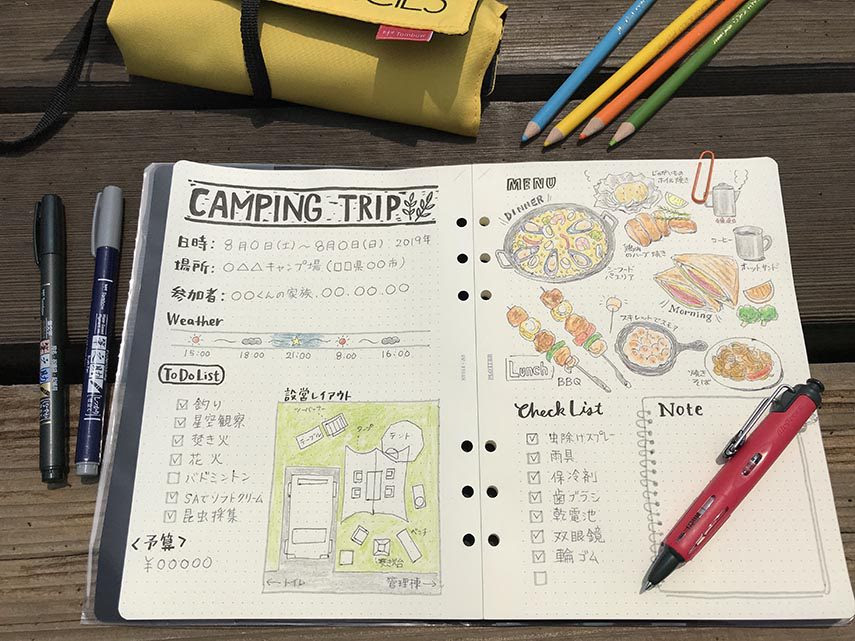 CILS
Tombow
CAMPING TRIP
日時：8月0日(土)〜8月0日(日) 2019年
場所：○△△キャンプ場(□□県○○市)
参加者：○○くんの家族、○○、○○、○○
Weather
15:00 18:00 21:00 8:00 16:00
To Do List
釣り
星空観察
焚き火
花火
バドミントン
SAでソフトクリーム
昆虫採集
<予算>
¥00000
設営レイアウト
ツーバーナー
テーブル
タープ
テント
ベンチ
焚き台
←トイレ
管理棟→
MENU
DINNER
じゃがいものホイル焼き
鶏肉のハーブ焼き
シーフードパエリア
コーヒー
ホットサンド
Morning
スキレットでスモア
Lunch
BBQ
焼きそば
Check List
虫除けスプレー
雨具
保冷剤
歯ブラシ
乾電池
双眼鏡
輪ゴム
Note